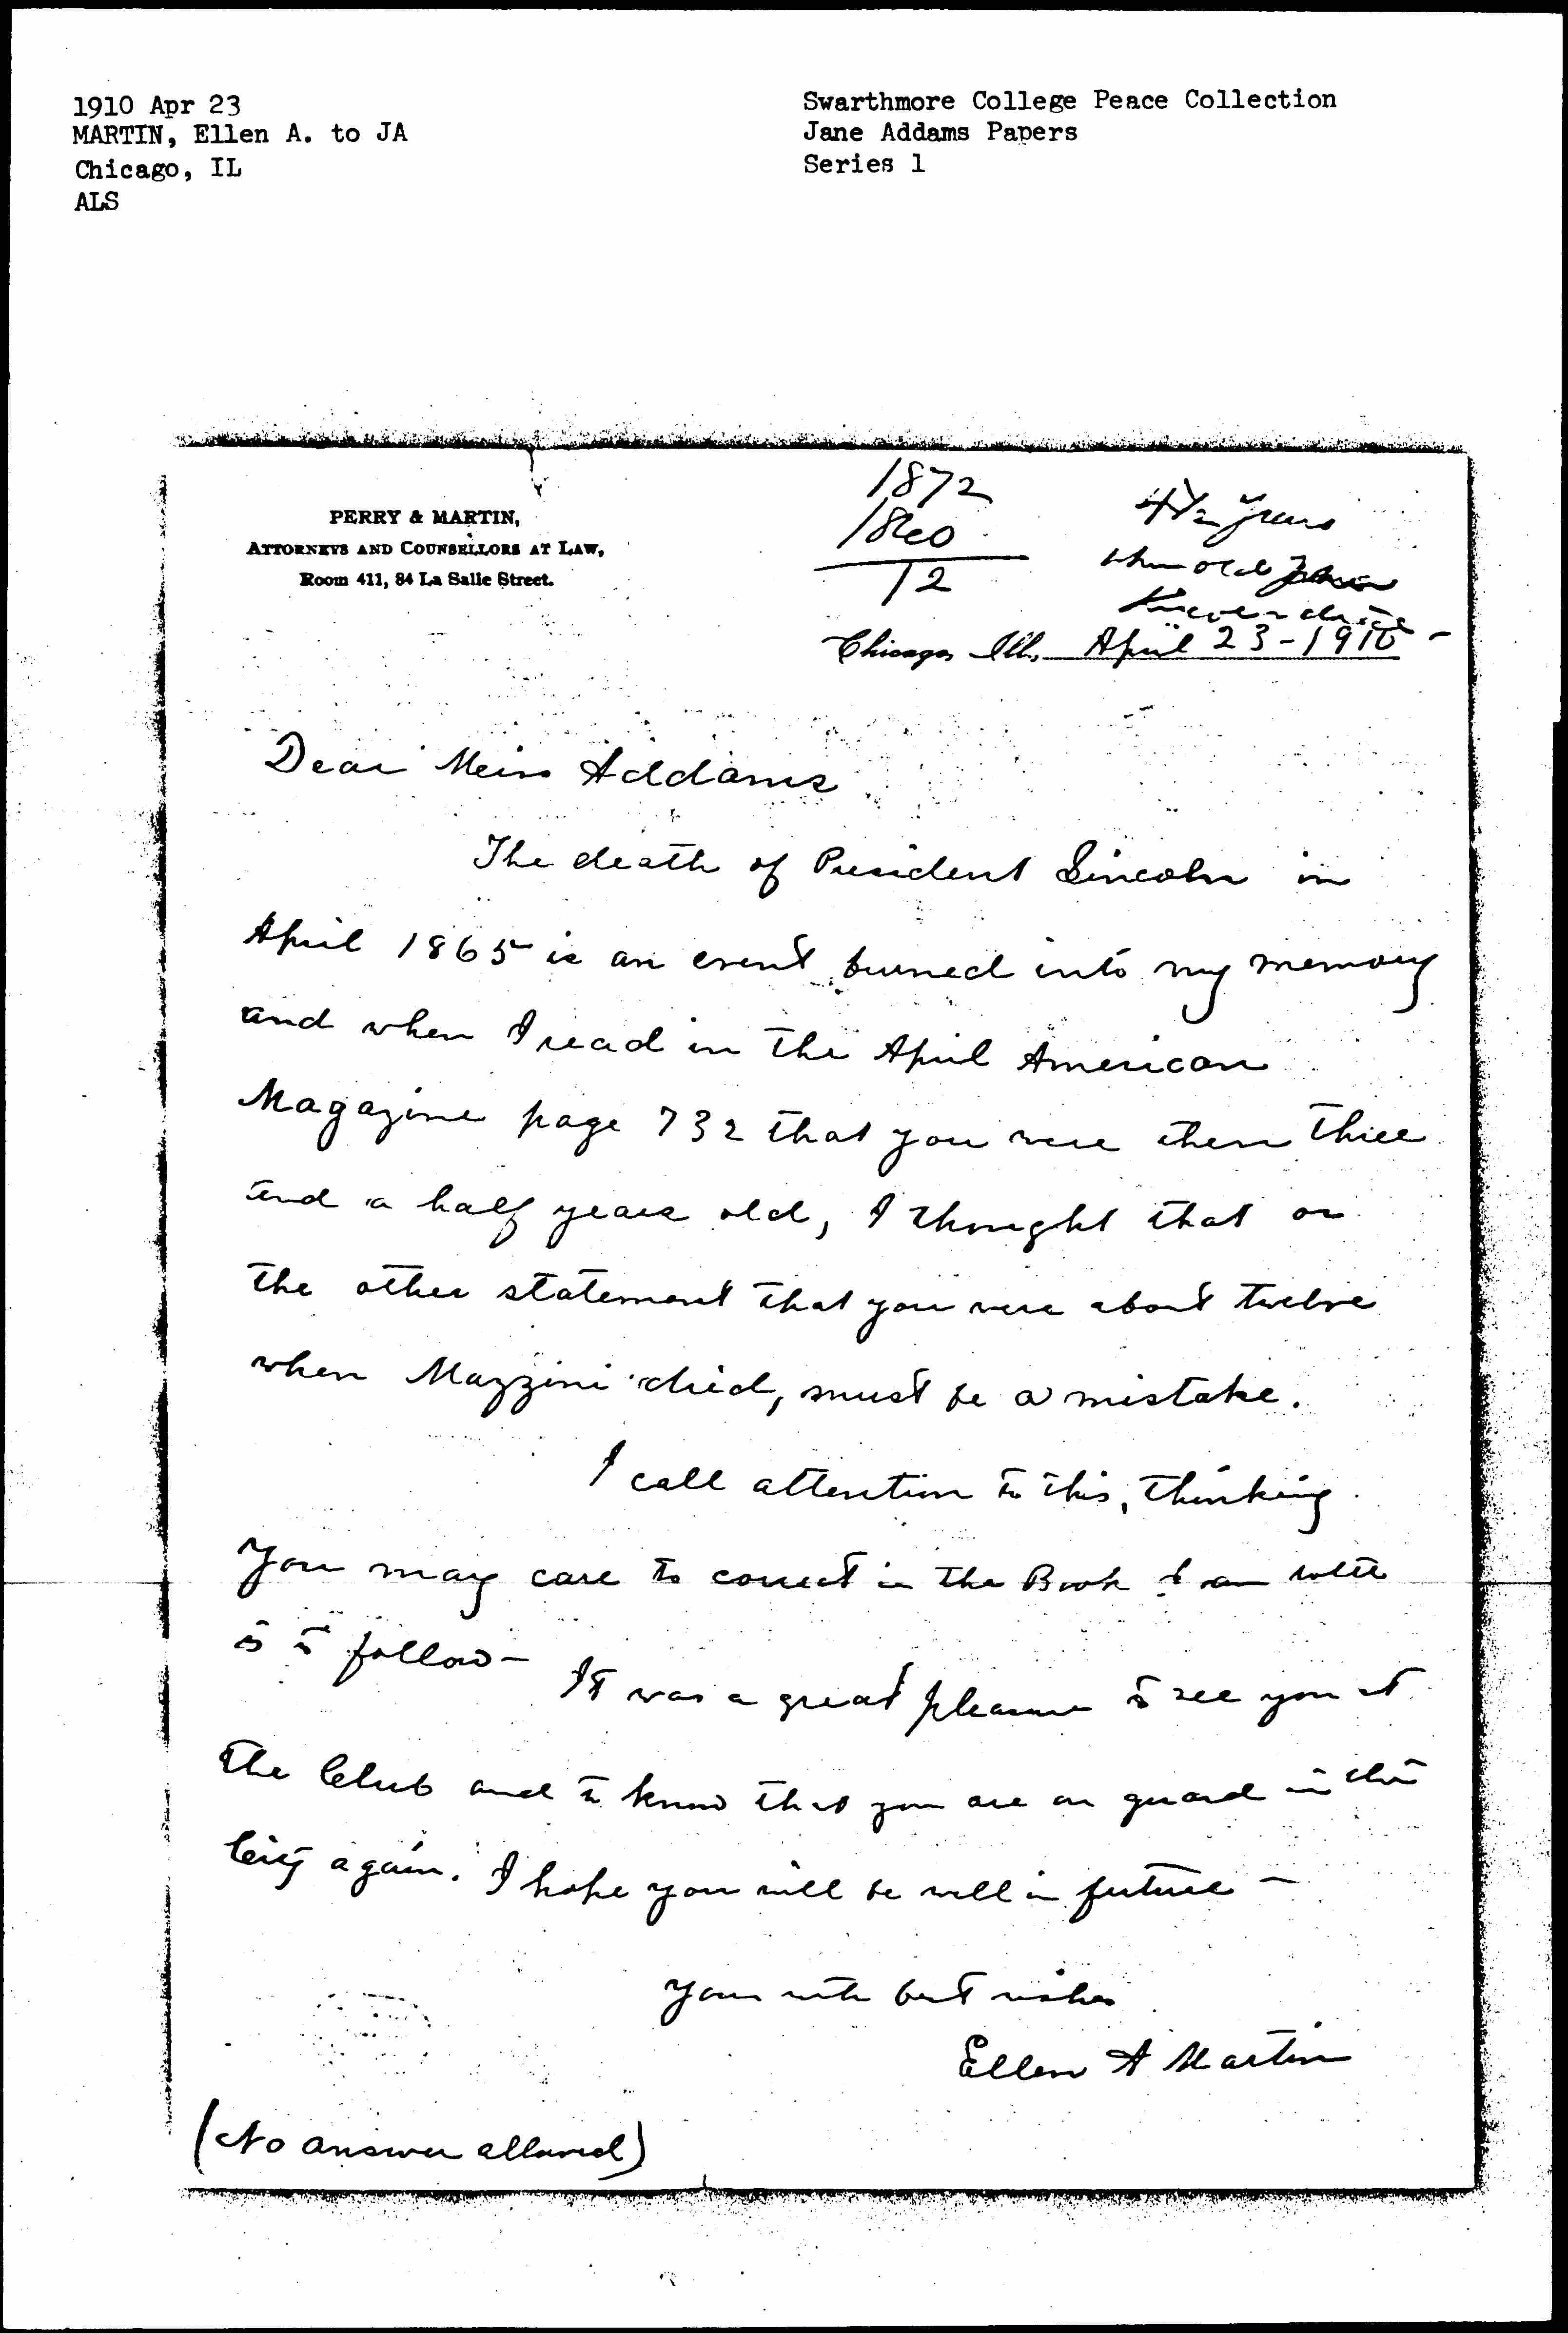 1910 Apr 23
MARTIN, Ellen A. to JA
Chicago, IL
ALS
Swarthmore College Peace Collection
Jane Addams Papers
Series 1
PERRY & MARTIN,
ATTORNEYS AND COUNSELLORS AT LAW,
Room 411, 84 La Salle Street.
1872
1860
12
4 1/2 years
when old John
Lincoln died
Chicago Ill., April 23-1910-
Dear Miss Addams
The death of President Lincoln in
April 1865 is an event burned into my memory
and when I read in the April American
Magazine page 732 that you were then three
and a half years old, I thought that or
the other statement that you were about twelve
when Mazzini died, must be a mistake.
I call attention to this, thinking
you may care to correct in the Book I am told
is to follow-
It was a great pleasure to see you at
the Club and to know that you are on guard in this
City again. I hope you will be well in future -
Yours with best wishes
Ellen A Martin
(No answer allowed)